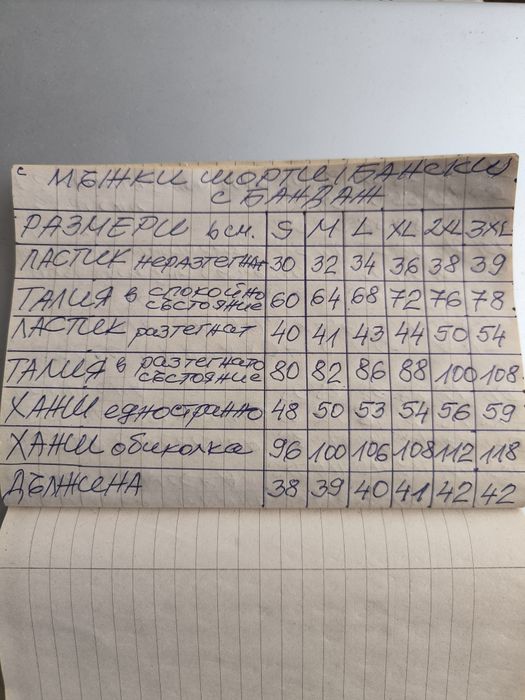 МЪЖКИ ШОРТИ/БАНСКИ
С БАНДАЖ
РАЗМЕРИ в см. S M L XL 2XL 3XL
ЛАСТИК неразтегнат 30 32 34 36 38 39
ТАЛИЯ в спокойно състояние 60 64 68 72 76 78
ЛАСТИК разтегнат 40 41 43 44 50 54
ТАЛИЯ в разтегнато състояние 80 82 86 88 100 108
ХАНШ едностранно 48 50 53 54 56 59
ХАНШ обиколка 96 100 106 108 112 118
ДЪЛЖИНА 38 39 40 41 42 42